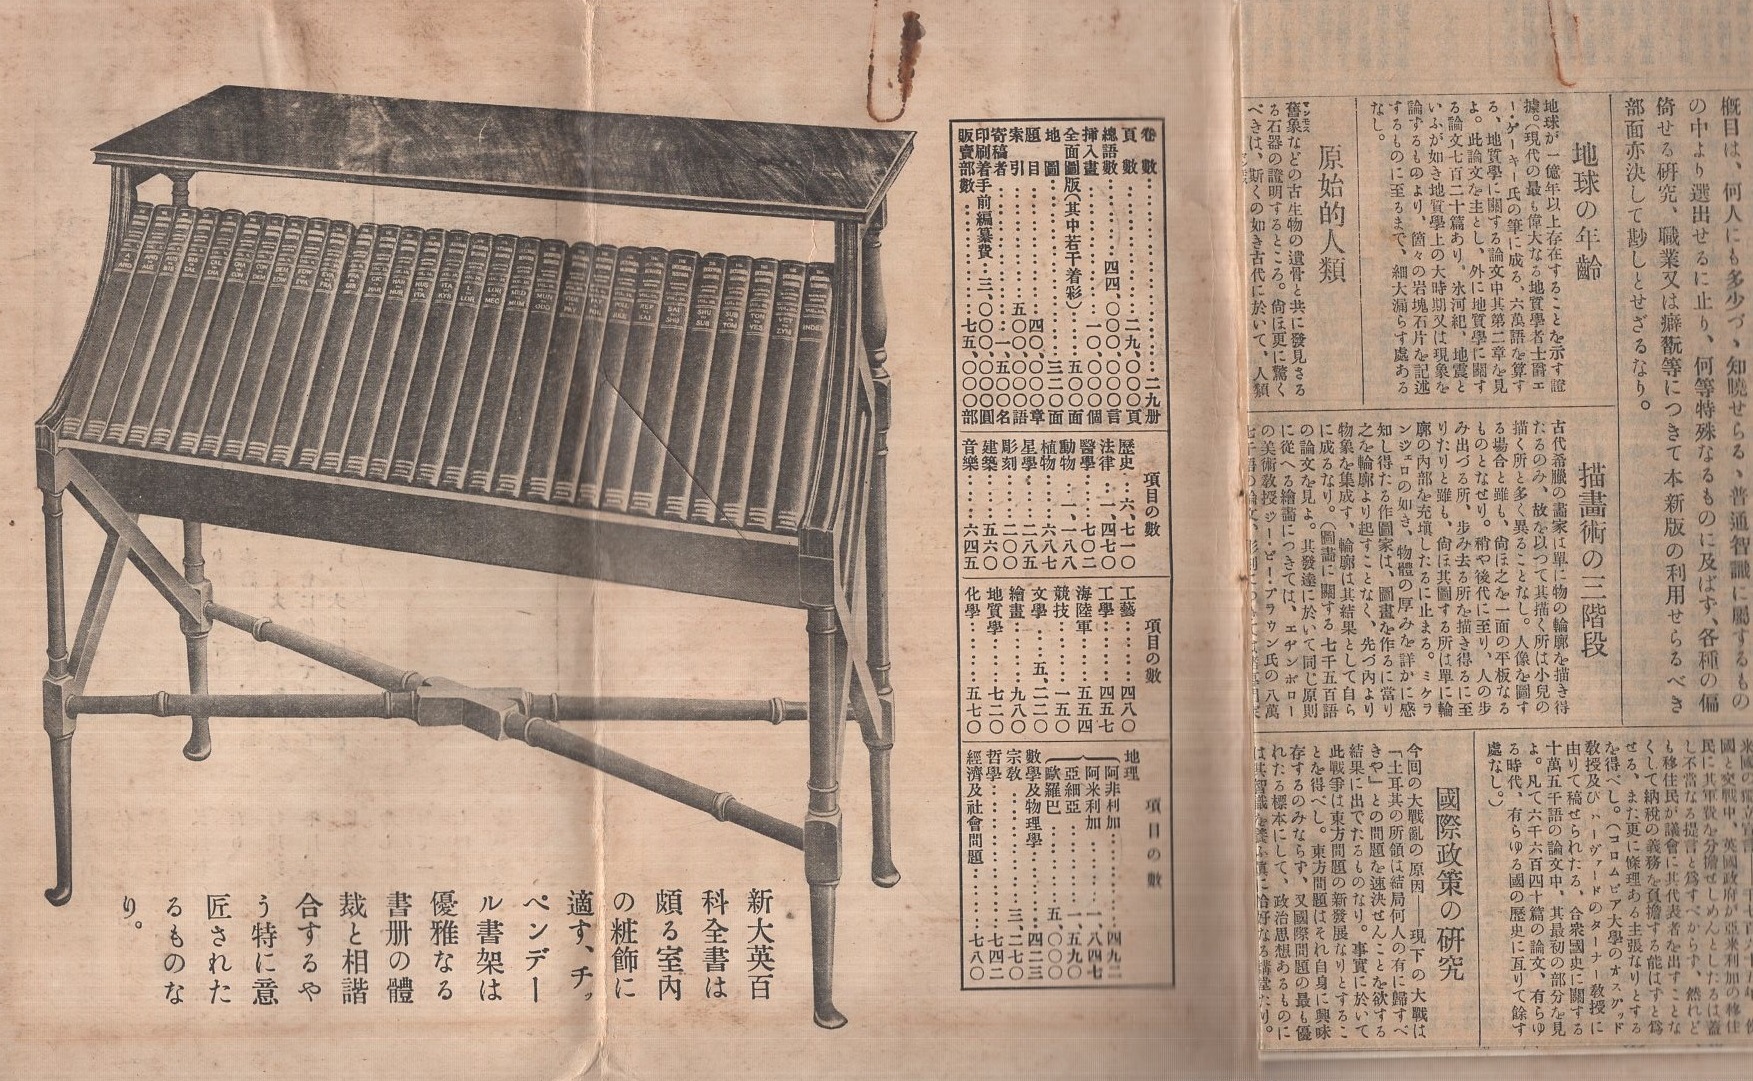 概目は、何人にも多少づゝ知曉せらるゝ普通智識に屬するもの
の中より選出せるに止り、何等特殊なるものに及ばず、各種の偏
倚せる研究、職業又は癖翫等につきて本新版の利用せらるべき
部面亦決して尠しとせざるなり。
地球の年齡
地球が一億年以上存在することを示す證
據。(現代の最も偉大なる地質學者士爵エ
ー・ゲーキー氏の筆に成る、六萬語を算す
る、地質學に關する論文中其第二章を見
よ。此論文を主とし、外に地質學に關す
る論文七百二十篇あり。氷河紀、地震と
いふが如き地質學上の大時期又は現象を
論するものより、箇々の岩塊石片を記述
するものに至るまで、細大漏らす處ある
なし。
原始的人類
舊象などの古生物の遺骨と共に發見さる
る石器の證明するところ。尙ほ更に驚く
べきは、斯くの如き古代に於いて、人類
描畫術の三階段
古代希臘の畵家は單に物の輪廓を描き得
たるのみ、故を以つて其描く所は小兒の
描く所と多く異ることなし。人像を圖す
る場合と雖も、尙ほ之を一面の平板なる
ものとなせり。稍や後代に至り、人の步
み出づる所、步み去る所を描き得るに至
りたりと雖も、尙ほ其圖する所は單に輪
廓の內部を充塡したるに止まる。ミケラ
ンジェロの如き、物體の厚みを詳かに感
知し得たる作圖家は、圖畫を作るに當り
之を輪廓より起すことなく、先づ內より
物象を集成す、輪廓は其結果として自ら
に成るなり。(圖畵に關する七千五百語
の論文を見よ。其發達に於いて同じ原則
に從へる繪畵につきては、エヂンボロー
の美術敎授ジー・ビー・ブラウン氏の八萬
國と交戰中、英國政府が亞米利加の移住
民に其軍費を分擔せしめんとしたるは蓋
し不當なる提言と爲すべからず、然れど
も移住民が議會に其代表者を出すことな
くして納稅の義務を負擔する能はずと爲
せる、また更に條理ある主張なりとする
を得べし。(コロムビア大學のオスグッド
敎授及びハーヴァードのターナー敎授に
由りて稿せられたる、合衆國史に關する
十萬五千語の論文中、其最初の部分を見
よ。凡て六千六百四十篇の論文、有らゆ
る時代、有らゆる國の歷史に亙りて餘す
處なし。)
國際政策の硏究
今回の大戰亂の原因――現下の大戰は
「土耳其の所領は結局何人の有に歸すべ
きや」との問題を速決せんことを欲する
結果に出でたるものなり。事實に於いて
此戰爭は東方問題の新發展なりとするこ
とを得べし。東方問題はそれ自身に興味
存するのみならず、又國際問題の最も優
れたる標本にして、政治思想あるものに
卷數‥‥‥二九册
頁數‥‥‥二九、〇〇〇頁
總語數‥‥‥四四、〇〇〇、〇〇〇言
揷入畫‥‥‥一〇、〇〇〇個
全面圖版(其中若干着彩)‥‥‥五〇〇面
地圖‥‥‥三二〇面
題目‥‥‥四〇、〇〇〇章
索引‥‥‥五〇〇、〇〇〇語
寄稿者‥‥‥一、五〇〇名
印刷着手前編纂費‥‥‥三、〇〇〇、〇〇〇圓
販賣部數‥‥‥七五、〇〇〇部
項目の數
歷史‥‥‥六、七一〇
法律‥‥‥一、四七〇
醫學‥‥‥七〇二
動物‥‥‥一、一八八
植物‥‥‥六八七
星學‥‥‥二八五
彫刻‥‥‥二〇〇
建築‥‥‥五六〇
音樂‥‥‥六四五
項目の數
工藝‥‥‥四八〇
工學‥‥‥四五七
海陸軍‥‥‥五五四
競技‥‥‥一五〇
文學‥‥‥五、二二〇
繪畫‥‥‥九八〇
地質學‥‥‥七二〇
化學‥‥‥五七〇
項目の數
地理
阿非利加‥‥‥四九二
阿米利加‥‥‥一、八四七
亞細亞‥‥‥一、五九〇
歐羅巴‥‥‥五、〇〇〇
數學及物理學‥‥‥四二三
宗敎‥‥‥三、二七〇
哲學‥‥‥七四二
經濟及社會問題‥‥‥七八〇
新大英百
科全書は
頗る室內
の粧飾に
適す、チッ
ペンデー
ル書架は
優雅なる
書册の體
裁と相諧
合するや
う特に意
匠された
るものな
り。